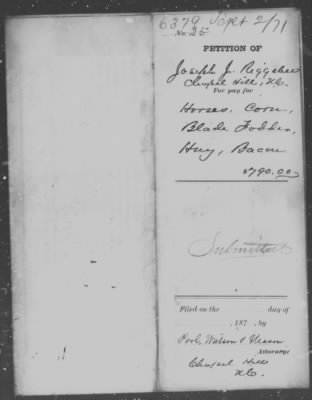 6379 Sept 2/71
No. 25
PETITION OF
Joseph J. Riggsbee
Chapel Hill, N.C.
For pay for
Horses. Corn,
Blade Fodder,
Hay, Bacon
$790.00
Submitted
Filed on the day of
, 187 , by
Pool, Watson &
Attorneys
Chapel Hill
N.C.